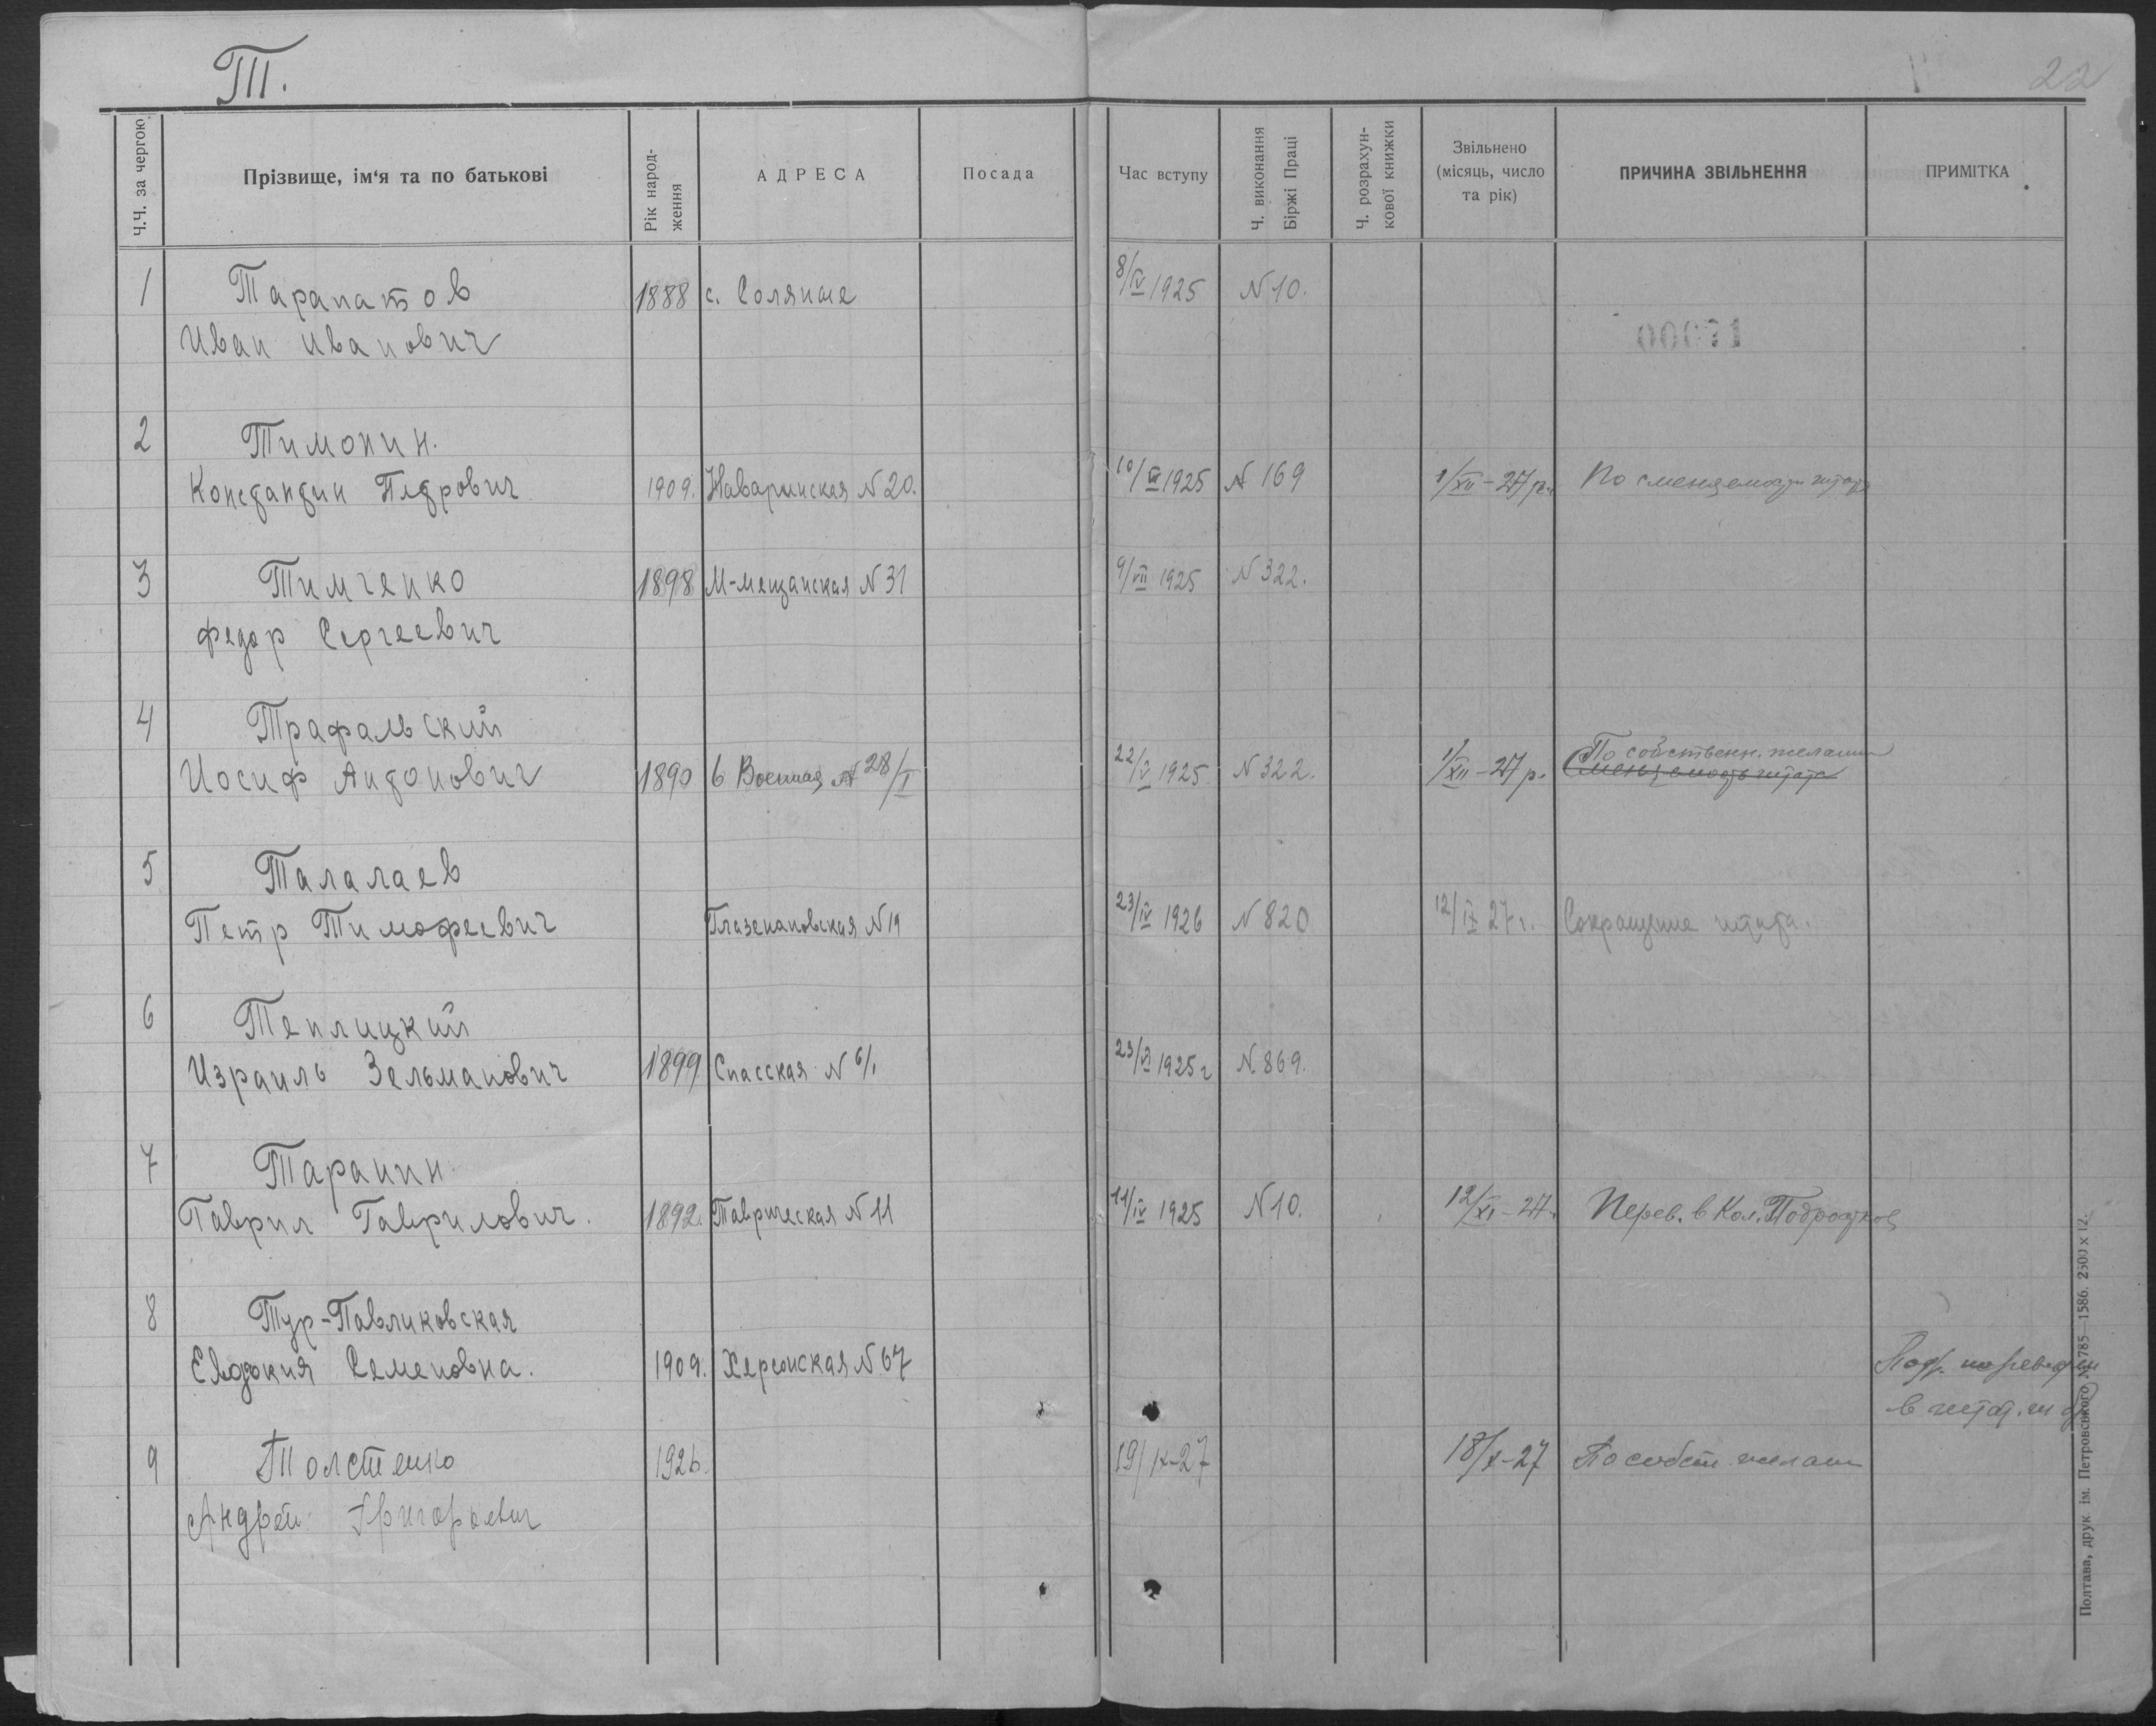 Т.
22
Ч.Ч. за чергою
Прізвище, ім'я та по батькові
Рік народ-
ження
АДРЕСА
Посада
Час вступу
Ч. виконання
Біржі Праці
Ч. розрахун-
кової книжки
Звільнено
(місяць, число
та рік)
ПРИЧИНА ЗВІЛЬНЕННЯ
ПРИМІТКА
1 Тарапатов 1888 с. Соляные 8/IV 1925 N 10.
Иван Иванович
00071
2 Тимонин.
Константин Петрович 1909. Наваринская N 20. 10/VII 1925 N 169 1/XII-27 р. По сменяемости штата
3 Тимченко 1898 М-мещанская N 31 9/VII 1925 N 322.
Федор Сергеевич
4 Трафальский По собственн. желанию
Иосиф Антонович 1890 6 Военная N 28/I 22/V 1925 N 322. 1/XII-27 р. Сменяемость штата
5 Талалаев
Петр Тимофеевич Глазенаповская N 19 23/IV 1926 N 820 12/IX 27 г. Сокращение штата.
6 Теплицкий
Израиль Зельманович 1899 Спасская N 6/1 23/VI 1925 г N. 869.
7 Таранин
Гаврил Гаврилович. 1892. Таврическая N 11 11/IV 1925 N 10. 12/XI-27. Перев. в Кол. Подростков
8 Тур-Павликовская
Евдокия Семеновна. 1909. Херсонская N 67
в штат.
9 Толстенко 1926. 19/IX-27 18/X-27 По собств. желан
Андрей Григорьевич
Полтава, друк. ім. Петровського № 785—1586. 2500 x 12.